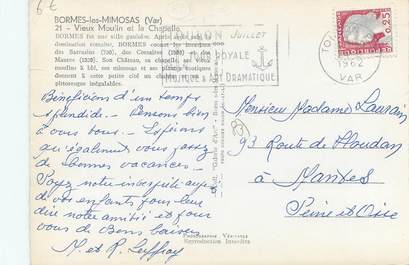 6€
BORMES-les-MIMOSAS (Var)
21 - Vieux Moulin et la Chapelle
BORMES est une ville païenne. Après avoir subi la
domination romaine, BORMES connut les incursions
des Sarrasins (730), des Corsaires
Maures (1529). Son Château, sa chapelle, ses vieux
moulins à blé, ses maisons et ses ruelles
donnent à cette petite cité un charme
pittoresque inégalables.
Bénéficions d'un temps
splendide. Pensons bien
à vous tous. Espérons
qu'également vous passez
de bonnes vacances.
Soyez notre interprète auprès
de vos enfants pour leur
dire notre amitié et pour
vous de Bons baisers
M. et R. Leffray
TOULON JUILLET
TOUR ROYALE
MUSIQUE & ART DRAMATIQUE
TOULON
1962
VAR
REPUBLIQUE FRANCAISE
0,25
Monsieur Madame Laurain
93 Route de Houdan
à Mantes
Seine et Oise
Photographie Véritable
Reproduction Interdite